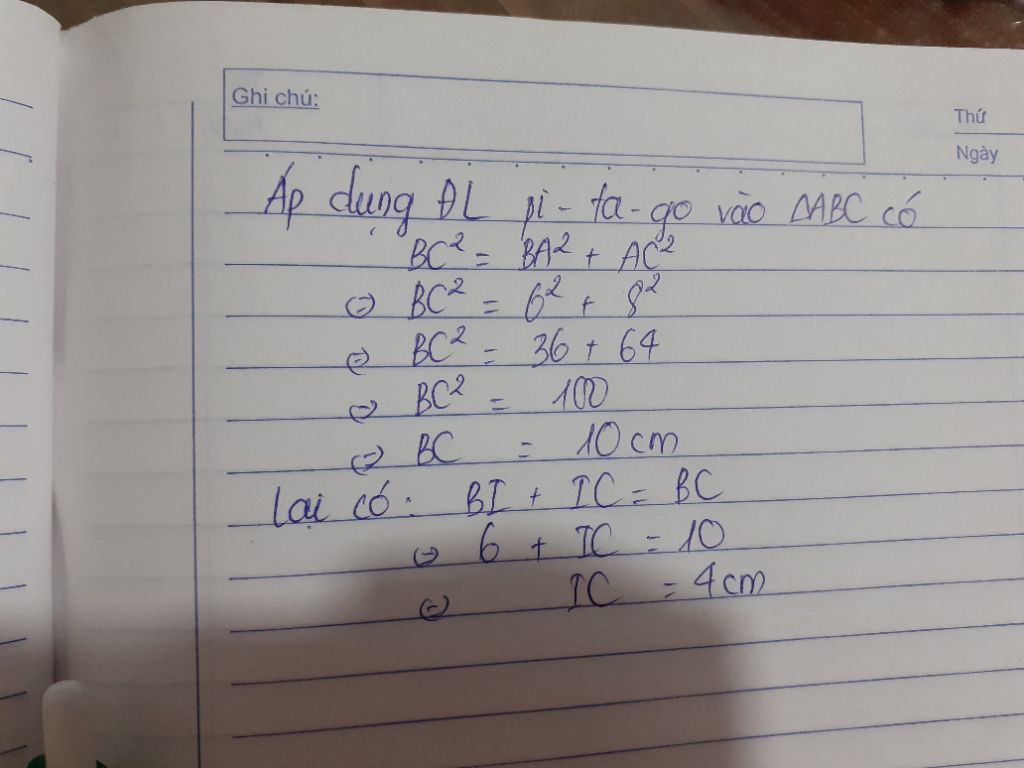 Ghi chú:
Thứ
Ngày
Áp dụng ĐL pi-ta-go vào ΔABC có
BC² = BA² + AC²
⇔ BC² = 6² + 8²
⇔ BC² = 36 + 64
⇔ BC² = 100
⇔ BC = 10cm
Lại có: BI + IC = BC
⇔ 6 + IC = 10
⇔ IC = 4cm